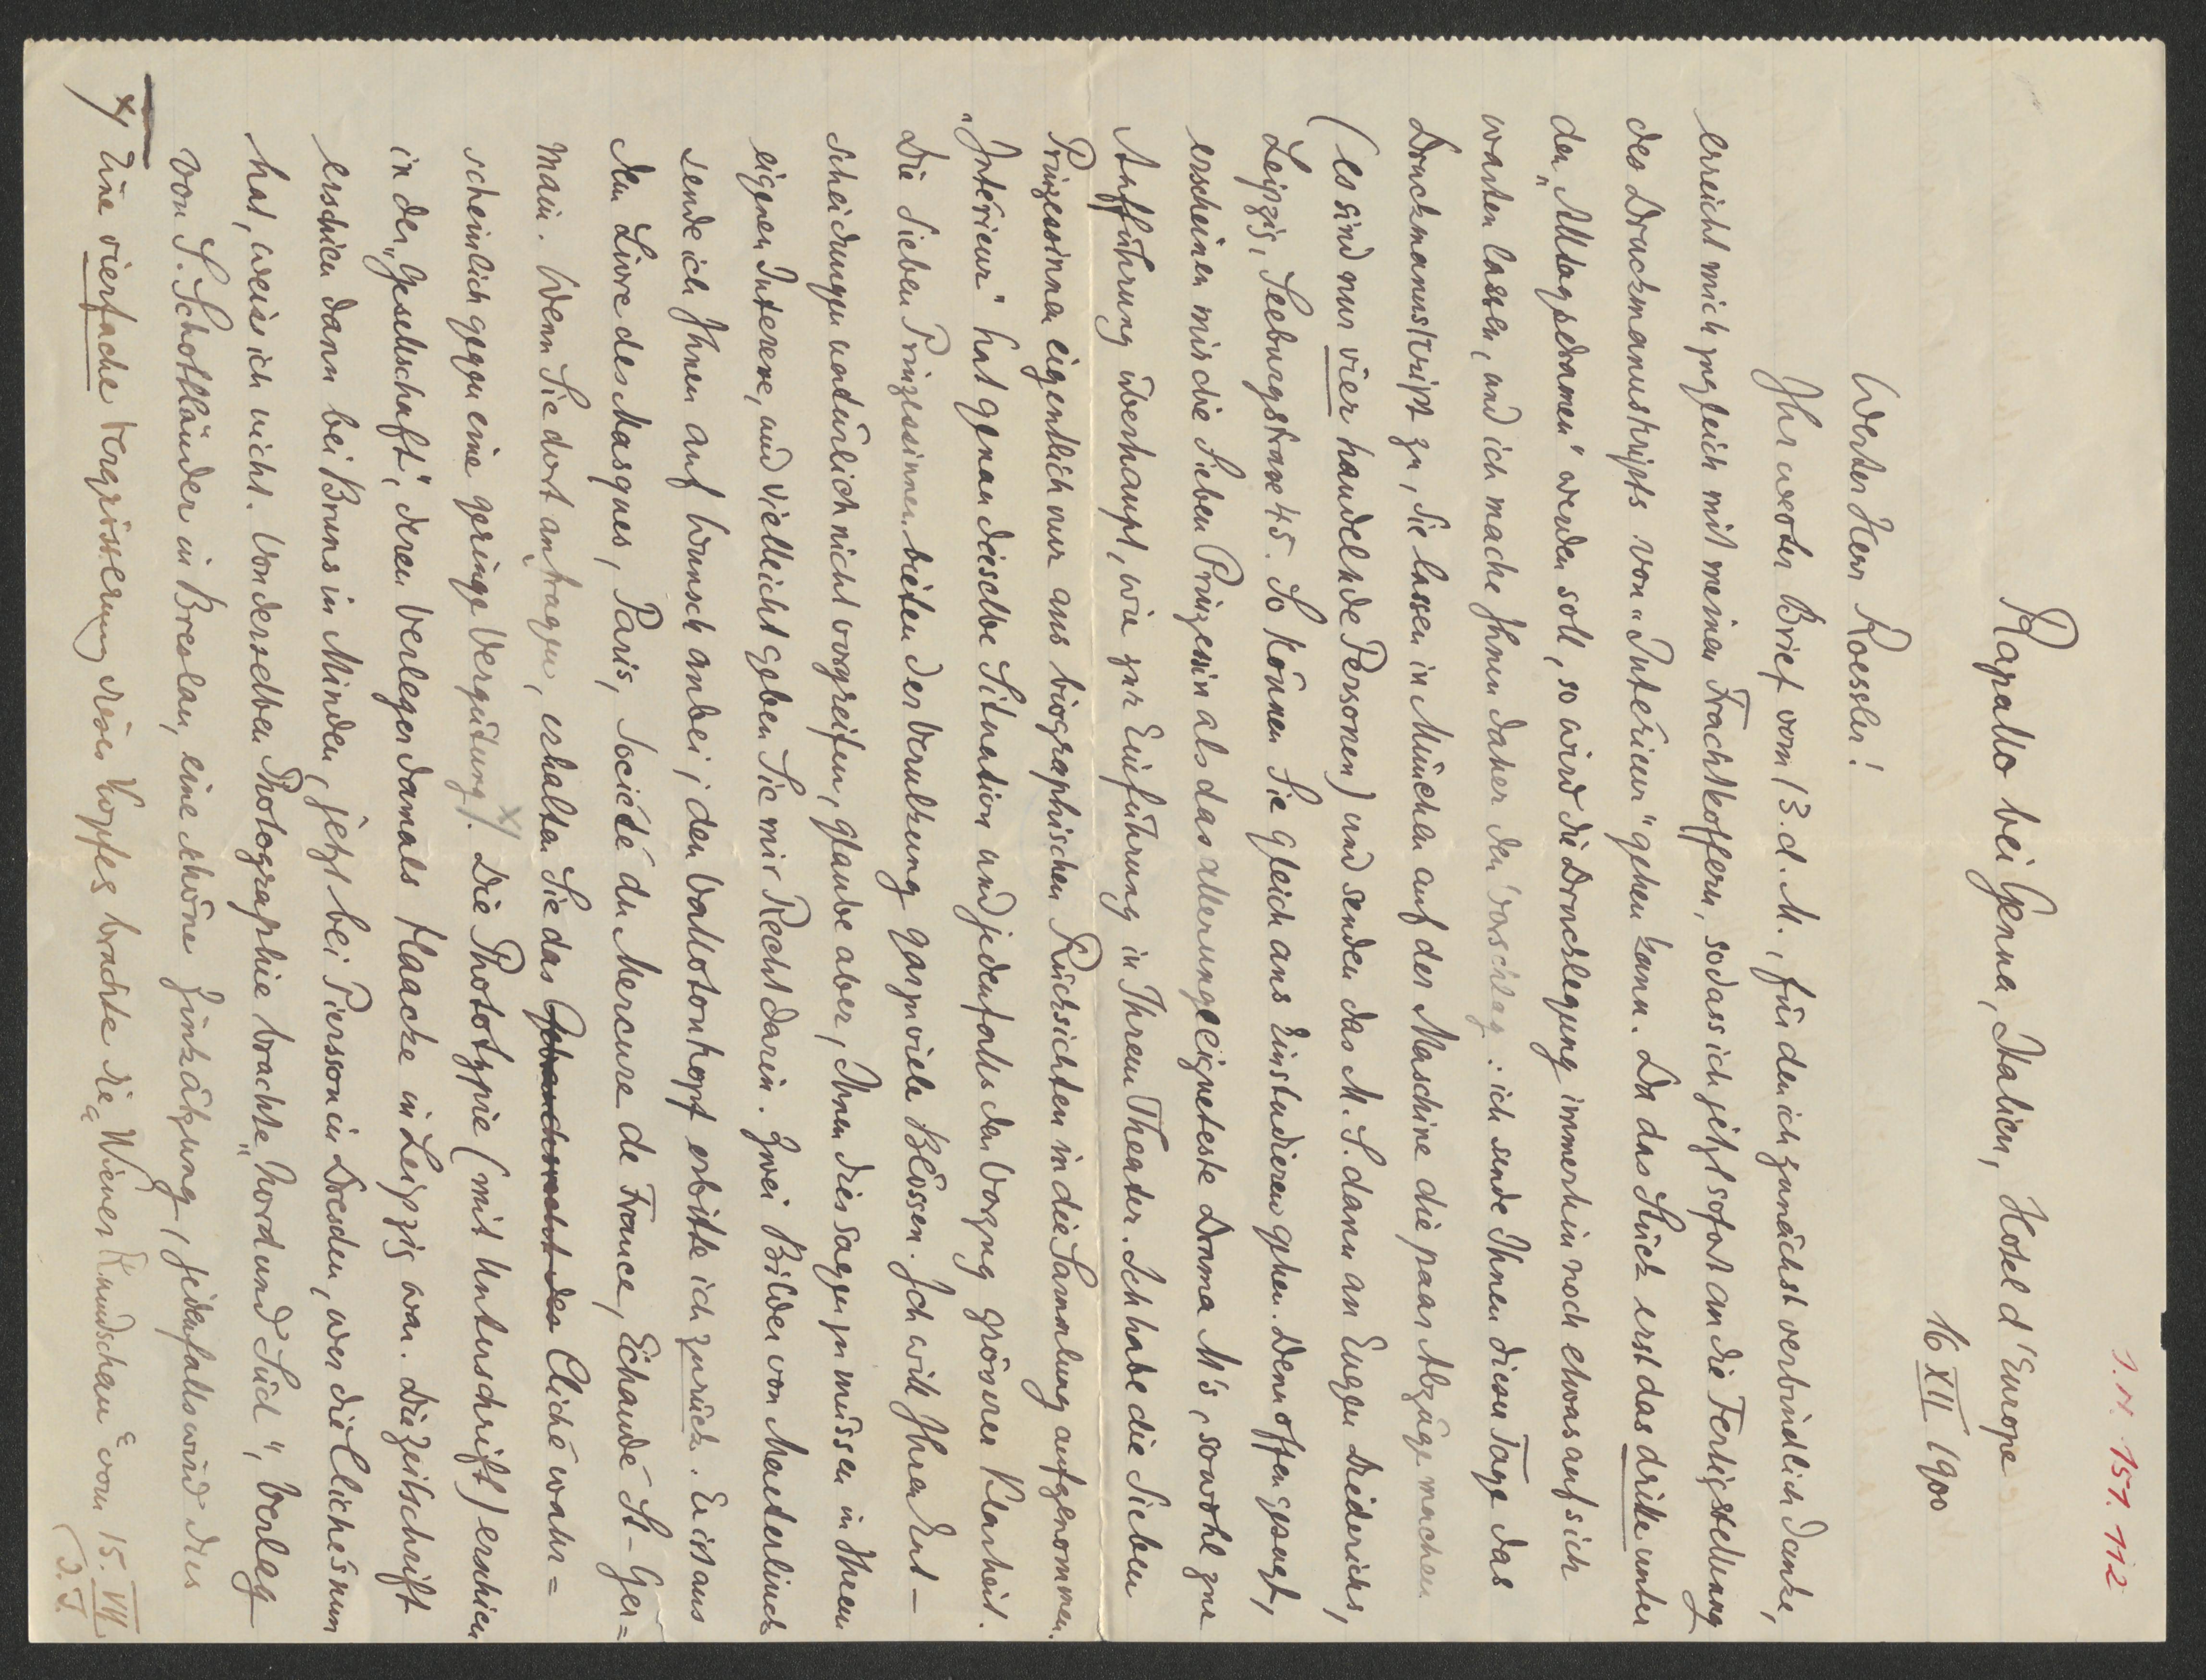 J. N. 151.112
Rapallo bei Genua, Italien, Hotel d'Europe
16 XII 1900
Werter Herr Roessler!
Ihr werter Brief vom 13. d. M., für den ich zunächst verbindlich danke,
erreicht mich zugleich mit meinen Frachtkoffern, sodass ich jetzt sofort an die Fertigstellung
des Druckmanuskripts von „Intérieur“ gehen kann. Da das Stück erst das dritte unter
den „Alltagsdramen“ werden soll, so wird die Drucklegung immerhin noch etwas auf sich
warten lassen, und ich mache Ihnen daher den Vorschlag: ich sende Ihnen diesen Tage das
Druckmanuskript zu, Sie lassen in München auf der Maschine die paar Abzüge machen
(es sind nur vier handelnde Personen) und senden das M. S. dann an Eugen Diederichs,
Leipzig, Seeburgstrasse 45. So können Sie gleich ans Einstudieren gehen. Denn offen gesagt,
erscheinen mir die Sieben Prinzessin als das allerungeeigneteste Drama M's, sowohl zur
Aufführung überhaupt, wie zur Einführung in Ihrem Theater. Ich habe die Sieben
Prinzessinnen eigentlich nur aus biographischen Rücksichten in die Sammlung aufgenommen.
„Intérieur“ hat genau dieselbe Situation und jedenfalls den Vorzug grösserer Klarheit.
Die Sieben Prinzessinnen bieten der Verulkung gar zu viele Blössen. Ich will Ihren Ent-
scheidungen natürlich nicht vorgreifen, glaube aber, Ihnen dies sagen zu müssen in Ihrem
eigenen Interesse, und vielleicht geben Sie mir Recht darin. Zwei Bilder von Maeterlinck
sende ich Ihnen auf Wunsch anbei; den Vallotonkopf erbitte ich zurück. Er ist aus
dem Livre des Masques, Paris, Société du Mercure de France, Echaudé St-Ger=
main. Wenn Sie dort anfragen, erhalten Sie das Gebrauchsrecht des Cliché wahr=
scheinlich gegen eine geringe Vergütung x). Die Phototypie (mit Unterschrift) erschien
in der „Gesellschaft“, deren Verleger damals Haacke in Leipzig war. Die Zeitschrift
erschien dann bei Bruns in Minden, jetzt bei Pierson in Dresden, wer die Cliché's nun
hat, weiss ich nicht. Von derselben Photographie brachte „Nord und Süd“, Verlag
von S. Schottländer in Breslau, eine schöne Zinkätzung, jedenfalls wird dies
x) Eine vierfache Vergrösserung dieses Kopfes brachte die „Wiener Rundschau“ vom 15. VII